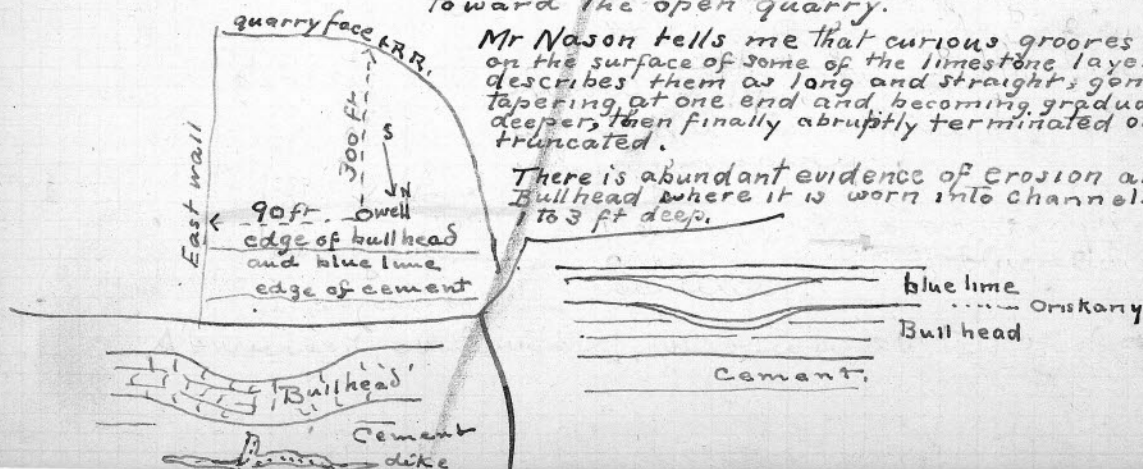 Toward the open quarry.
quarry face & R.R.
Mr Nason tells me that curious grooves
on the surface of some of the limestone laye
describes them as long and straight, gen
tapering at one end and becoming gradua
deeper, then finally abruptly terminated o
truncated.
There is abundant evidence of erosion a
Bullhead where it is worn into channel
1 to 3 ft deep.
East wall
300 ft
S
N
90 ft. well
edge of bullhead
and blue lime
edge of cement
blue lime
Oriskany
Bullhead
Cement.
Bullhead
Cement
dike